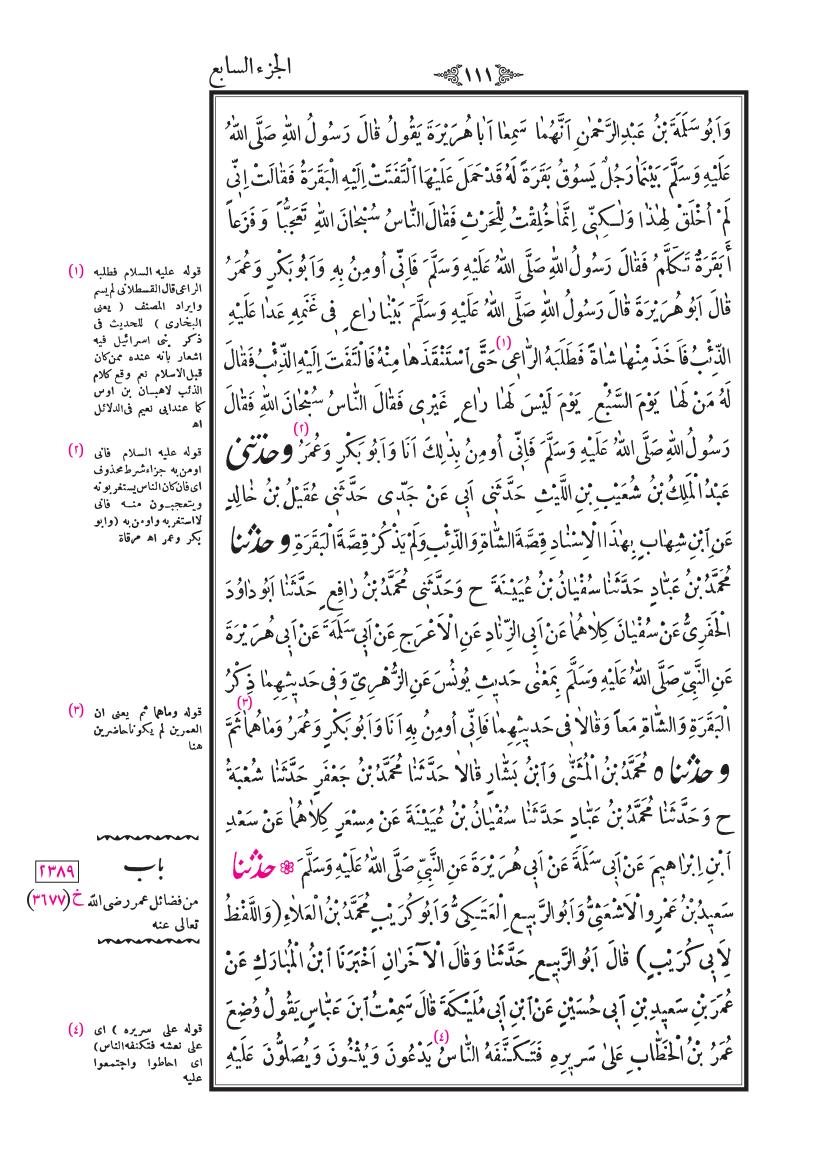 الجزء السابع
١١١
وَاَبُوسَلَمَةَ بْنُ عَبْدِ الرَّحْمٰنِ اَنَّهُمَا سَمِعَا اَبَا هُرَيْرَةَ يَقُولُ قَالَ رَسُولُ اللهِ صَلَّى اللهُ
عَلَيْهِ وَسَلَّمَ بَيْنَمَا رَجُلٌ يَسُوقُ بَقَرَةً لَهُ قَدْ حَمَلَ عَلَيْهَا اَلْتَفَتَتْ اِلَيْهِ الْبَقَرَةُ فَقَالَتْ اِنّى
لَمْ اُخْلَقْ لِهٰذَا وَلٰكِنّى اِنَّمَا خُلِقْتُ لِلْحَرْثِ فَقَالَ النَّاسُ سُبْحَانَ اللهِ تَعَجُّبًا وَفَزَعاً
أَبَقَرَةٌ تَكَلَّمُ فَقَالَ رَسُولُ اللهِ صَلَّى اللهُ عَلَيْهِ وَسَلَّمَ فَاِنّى اُومِنُ بِهِ وَاَبُوبَكْرٍ وَعُمَرُ
قَالَ اَبُوهُرَيْرَةَ قَالَ رَسُولُ اللهِ صَلَّى اللهُ عَلَيْهِ وَسَلَّمَ بَيْنَا رَاعٍ فى غَنَمِهِ عَدَا عَلَيْهِ
الذِّئْبُ فَاَخَذَ مِنْهَا شَاةً فَطَلَبَهُ الرَّاعى(١) حَتَّى اَسْتَنْقَذَهَا مِنْهُ فَالْتَفَتَ اِلَيْهِ الذِّئْبُ فَقَالَ
لَهُ مَنْ لَهَا يَوْمَ السَّبُعِ يَوْمَ لَيْسَ لَهَا رَاعٍ غَيْرى فَقَالَ النَّاسُ سُبْحَانَ اللهِ فَقَالَ
رَسُولُ اللهِ صَلَّى اللهُ عَلَيْهِ وَسَلَّمَ فَاِنّى اُومِنُ بِذٰلِكَ اَنَا وَاَبُوبَكْرٍ وَعُمَرُ(٢) وحدثنى
عَبْدُ الْمَلِكِ بْنُ شُعَيْبِ بْنِ اللَّيْثِ حَدَّثَنى اَبى عَنْ جَدّى حَدَّثَنى عُقَيْلُ بْنُ خَالِدٍ
عَنِ ابْنِ شِهَابٍ بِهٰذَا الْاِسْنَادِ قِصَّةَ الشَّاةِ وَالذِّئْبِ وَلَمْ يَذْكُرْ قِصَّةَ الْبَقَرَةِ وحدثنا
مُحَمَّدُ بْنُ عَبَّادٍ حَدَّثَنَا سُفْيَانُ بْنُ عُيَيْنَةَ ح وَحَدَّثَنى مُحَمَّدُ بْنُ رَافِعٍ حَدَّثَنَا اَبُودَاوُدَ
الْحَفَرِىُّ عَنْ سُفْيَانَ كِلَاهُمَا عَنْ اَبِى الزِّنَادِ عَنِ الْاَعْرَجِ عَنْ اَبى سَلَمَةَ عَنْ اَبى هُرَيْرَةَ
عَنِ النَّبِىِّ صَلَّى اللهُ عَلَيْهِ وَسَلَّمَ بِمَعْنٰى حَديثِ يُونُسَ عَنِ الزُّهْرِىِّ وَفى حَديثِهِمَا ذِكْرُ
الْبَقَرَةِ وَالشَّاةِ مَعاً وَقَالَا فى حَديثِهِمَا فَاِنّى اُومِنُ بِهِ اَنَا وَاَبُوبَكْرٍ وَعُمَرُ وَمَاهُمَا(٣) ثَمَّ
وحدثناه مُحَمَّدُ بْنُ الْمُثَنّٰى وَابْنُ بَشَّارٍ قَالَا حَدَّثَنَا مُحَمَّدُ بْنُ جَعْفَرٍ حَدَّثَنَا شُعْبَةُ
ح وَحَدَّثَنَا مُحَمَّدُ بْنُ عَبَّادٍ حَدَّثَنَا سُفْيَانُ بْنُ عُيَيْنَةَ عَنْ مِسْعَرٍ كِلَاهُمَا عَنْ سَعْدِ
ابْنِ اِبْرَاهيمَ عَنْ اَبى سَلَمَةَ عَنْ اَبى هُرَيْرَةَ عَنِ النَّبِىِّ صَلَّى اللهُ عَلَيْهِ وَسَلَّمَ ❁ حدثنا
سَعيدُ بْنُ عَمْرٍو الْاَشْعَثِىُّ وَاَبُو الرَّبيعِ الْعَتَكِىُّ وَاَبُو كُرَيْبٍ مُحَمَّدُ بْنُ الْعَلَاءِ (وَاللَّفْظُ
لِاَبى كُرَيْبٍ) قَالَ اَبُو الرَّبيعِ حَدَّثَنَا وَقَالَ الْآخَرَانِ اَخْبَرَنَا ابْنُ الْمُبَارَكِ عَنْ
عُمَرَ بْنِ سَعيدِ بْنِ اَبى حُسَيْنٍ عَنْ ابْنِ اَبى مُلَيْكَةَ قَالَ سَمِعْتُ ابْنَ عَبَّاسٍ يَقُولُ وُضِعَ
عُمَرُ بْنُ الْخَطَّابِ عَلٰى سَريرِهِ فَتَكَنَّفَهُ النَّاسُ(٤) يَدْعُونَ وَيُثْنُونَ وَيُصَلُّونَ عَلَيْهِ
(١) قوله عليه السلام فطلبه
الراعى قال القسطلانى لم يسم
وايراد المصنف ( يعنى
البخارى ) للحديث فى
ذكر بنى اسرائيل فيه
اشعار بأنه عنده ممن كان
قبل الاسلام نعم وقع كلام
الذئب لاهبان بن اوس
كما عند ابى نعيم فى الدلائل
اه
(٢) قوله عليه السلام فانى
اومن به جزاء شرط محذوف
اى فان كان الناس يستغربونه
ويتعجبون منه فانى
لا استغربه واومن به (وابو
بكر وعمر اه مرقاة
(٣) قوله وماهما ثم يعنى ان
العمرين لم يكونا حاضرين
هنا
باب
٢٣٨٩
من فضائل عمر رضى الله
خ(٣٦٧٧)
تعالى عنه
(٤) قوله على سريره ) اى
على نعشه فتكنفه الناس)
اى احاطوا واجتمعوا
عليه